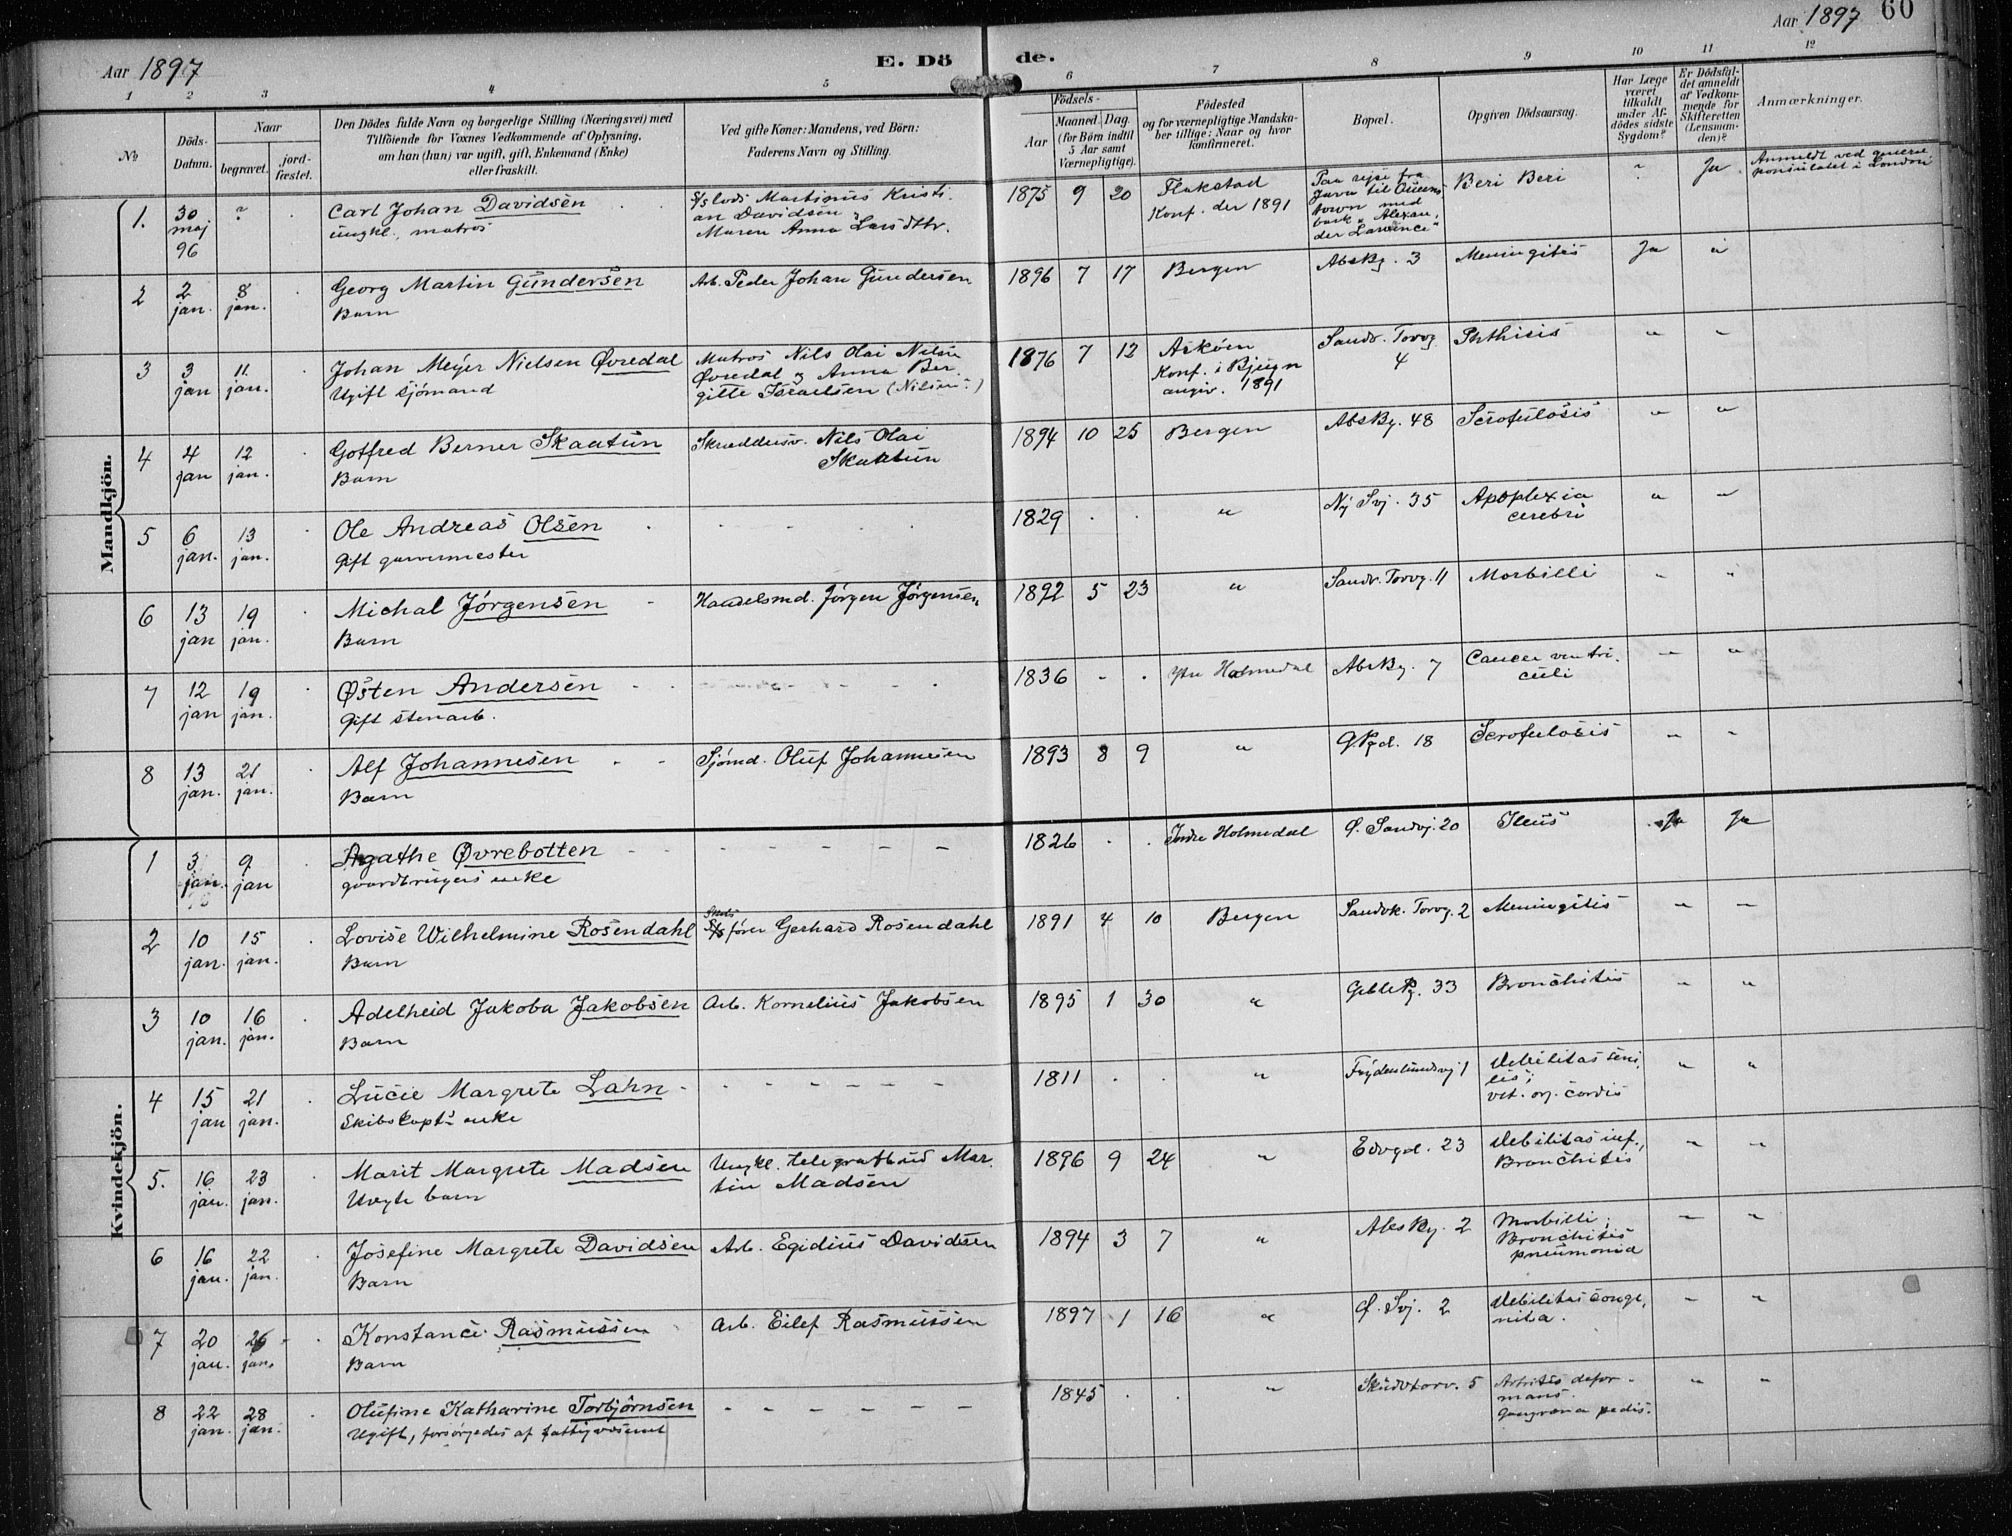 Aar 1897
E. Dö de.
Aar 1897 60
1 2 3 4 5 6 7 8 9 10 11 12
No
Döds-Datum.
Naar
begravet.
jord-fæstet.
Den Dödes fulde Navn og borgerlige Stilling (Næringsvei) med
Tilföiende for Voxnes Vedkommende af Oplysning,
om han (hun) var ugift, gift, Enkemand (Enke)
eller fraskilt.
Ved gifte Koner: Mandens, ved Börn:
Faderens Navn og Stilling.
Födsels-
Aar
Maaned. Dag.
(for Börn indtil
5 Aar samt
Værnepligtige).
Födested
og for værnepligtige Mandska-
ber tillige: Naar og hvor
konfirmeret.
Bopæl.
Opgiven Dödsaarsag.
Har Læge
været
tilkaldt
under Af-
dödes sidste
Sygdom?
Er Dödsfal-
det anmeldt
af Vedkom-
mende for
Skifteretten
(Lensman-
den)?
Anmærkninger.
Mandkjön.
1. 30 maj 96 ? Carl Johan Davidsen
ungk., matros
Martinus Kristi-
an Davidsen
Maren Anna Larsdtr.
1875 9 20 Flakstad
Konf. der 1891
Paa rejse fra
Java til Queens
town med
bark „Alexan
der Lawrence"
Beri Beri ? Ja Anmeldt ved general
konsulatet i London
2 2 jan. 8 jan. Georg Martin Gundersen
Barn
Arb. Peder Johan Gundersen 1896 7 17 Bergen AbsBg. 3 Meningitis Ja "
3 3 jan 11 jan. Johan Meyer Nielsen Øvredal
Ugift sjømand
Matros Nils Olai Nilsen
Øvredal og Anna Ber
gitte Israelsen (Nilsen?)
1876 7 12 Askøen
Konf. i Bjugn
angiv. 1891
Sandv. Torvg.
4
Phthisis " "
4 4 jan 12 jan. Gotfred Berner Skaatun
Barn
Skræddersv. Nils Olai
Skaatun
1894 10 25 Bergen AbsBg. 48 Scrofulosis " "
5 6 jan. 13 jan. Ole Andreas Olsen
Gift garvermester
1829 " Ny Svj. 35 Apoplexia
cerebri " "
6 13 jan 19 jan. Michal Jørgensen
Barn
Handelsmd. Jørgen Jørgensen 1892 5 23 " Sandv. Torvg. 11 Morbilli " "
7 12 jan 19 jan. Østen Andersen
Gift stenarb.
1836 Ytre Holmedal AbsBg. 7 Cancer ventri-
culi " "
8 13 jan. 21 jan. Alf Johannesen
Barn
Sjømd. Oluf Johannesen 1893 8 9 " 18 Scrofulosis " "
Kvindekjön.
1 3 jan. 9 jan Agathe Øvrebotten
gaardbrugers enke
1826 Indre Holmedal Ø. Sandvj. 20 Ileus Ja Ja
2 10 jan. 15 jan. Lovise Wilhelmine Rosendahl
Barn
fører Gerhard Rosendahl 1891 4 10 Bergen Sandvk. Torvg. 2 Meningitis " "
3 10 jan. 16 jan. Adelheid Jakoba Jakobsen
Barn
Arb. Kornelius Jakobsen 1895 1 30 " 33 Bronchitis " "
4 15 jan 21 jan. Lucie Margrete Lahn
Skibskapt.s enke
1811 " Frydenlundsvj 1 Debilitas seni
lis;
vit. org. cordis " "
5. 16 jan. 23 jan. Marit Margrete Madsen
Uægte barn
Ungkl. telegrafbud Mar
tin Madsen
1896 9 24 " 23 Debilitas inf.,
Bronchitis " "
6 16 jan. 22 jan. Josefine Margrete Davidsen
Barn
Arb. Egidius Davidsen 1894 3 7 " AbsBg. 2 Morbilli;
Bronchitis
pneumonia " "
7 20 jan. 26 jan. Konstance Rasmussen
Barn
Arb. Eilef Rasmussen 1897 1 16 " Ø. Svj. 2 Debilitas conge
nita. " "
8 22 jan. 28 jan. Olufine Katharine Torbjørnsen
Ugift, forsørgedes af fattigvæsenet
1845 " 5 Artritis defor-
mans.
Gangræna pedis. " "